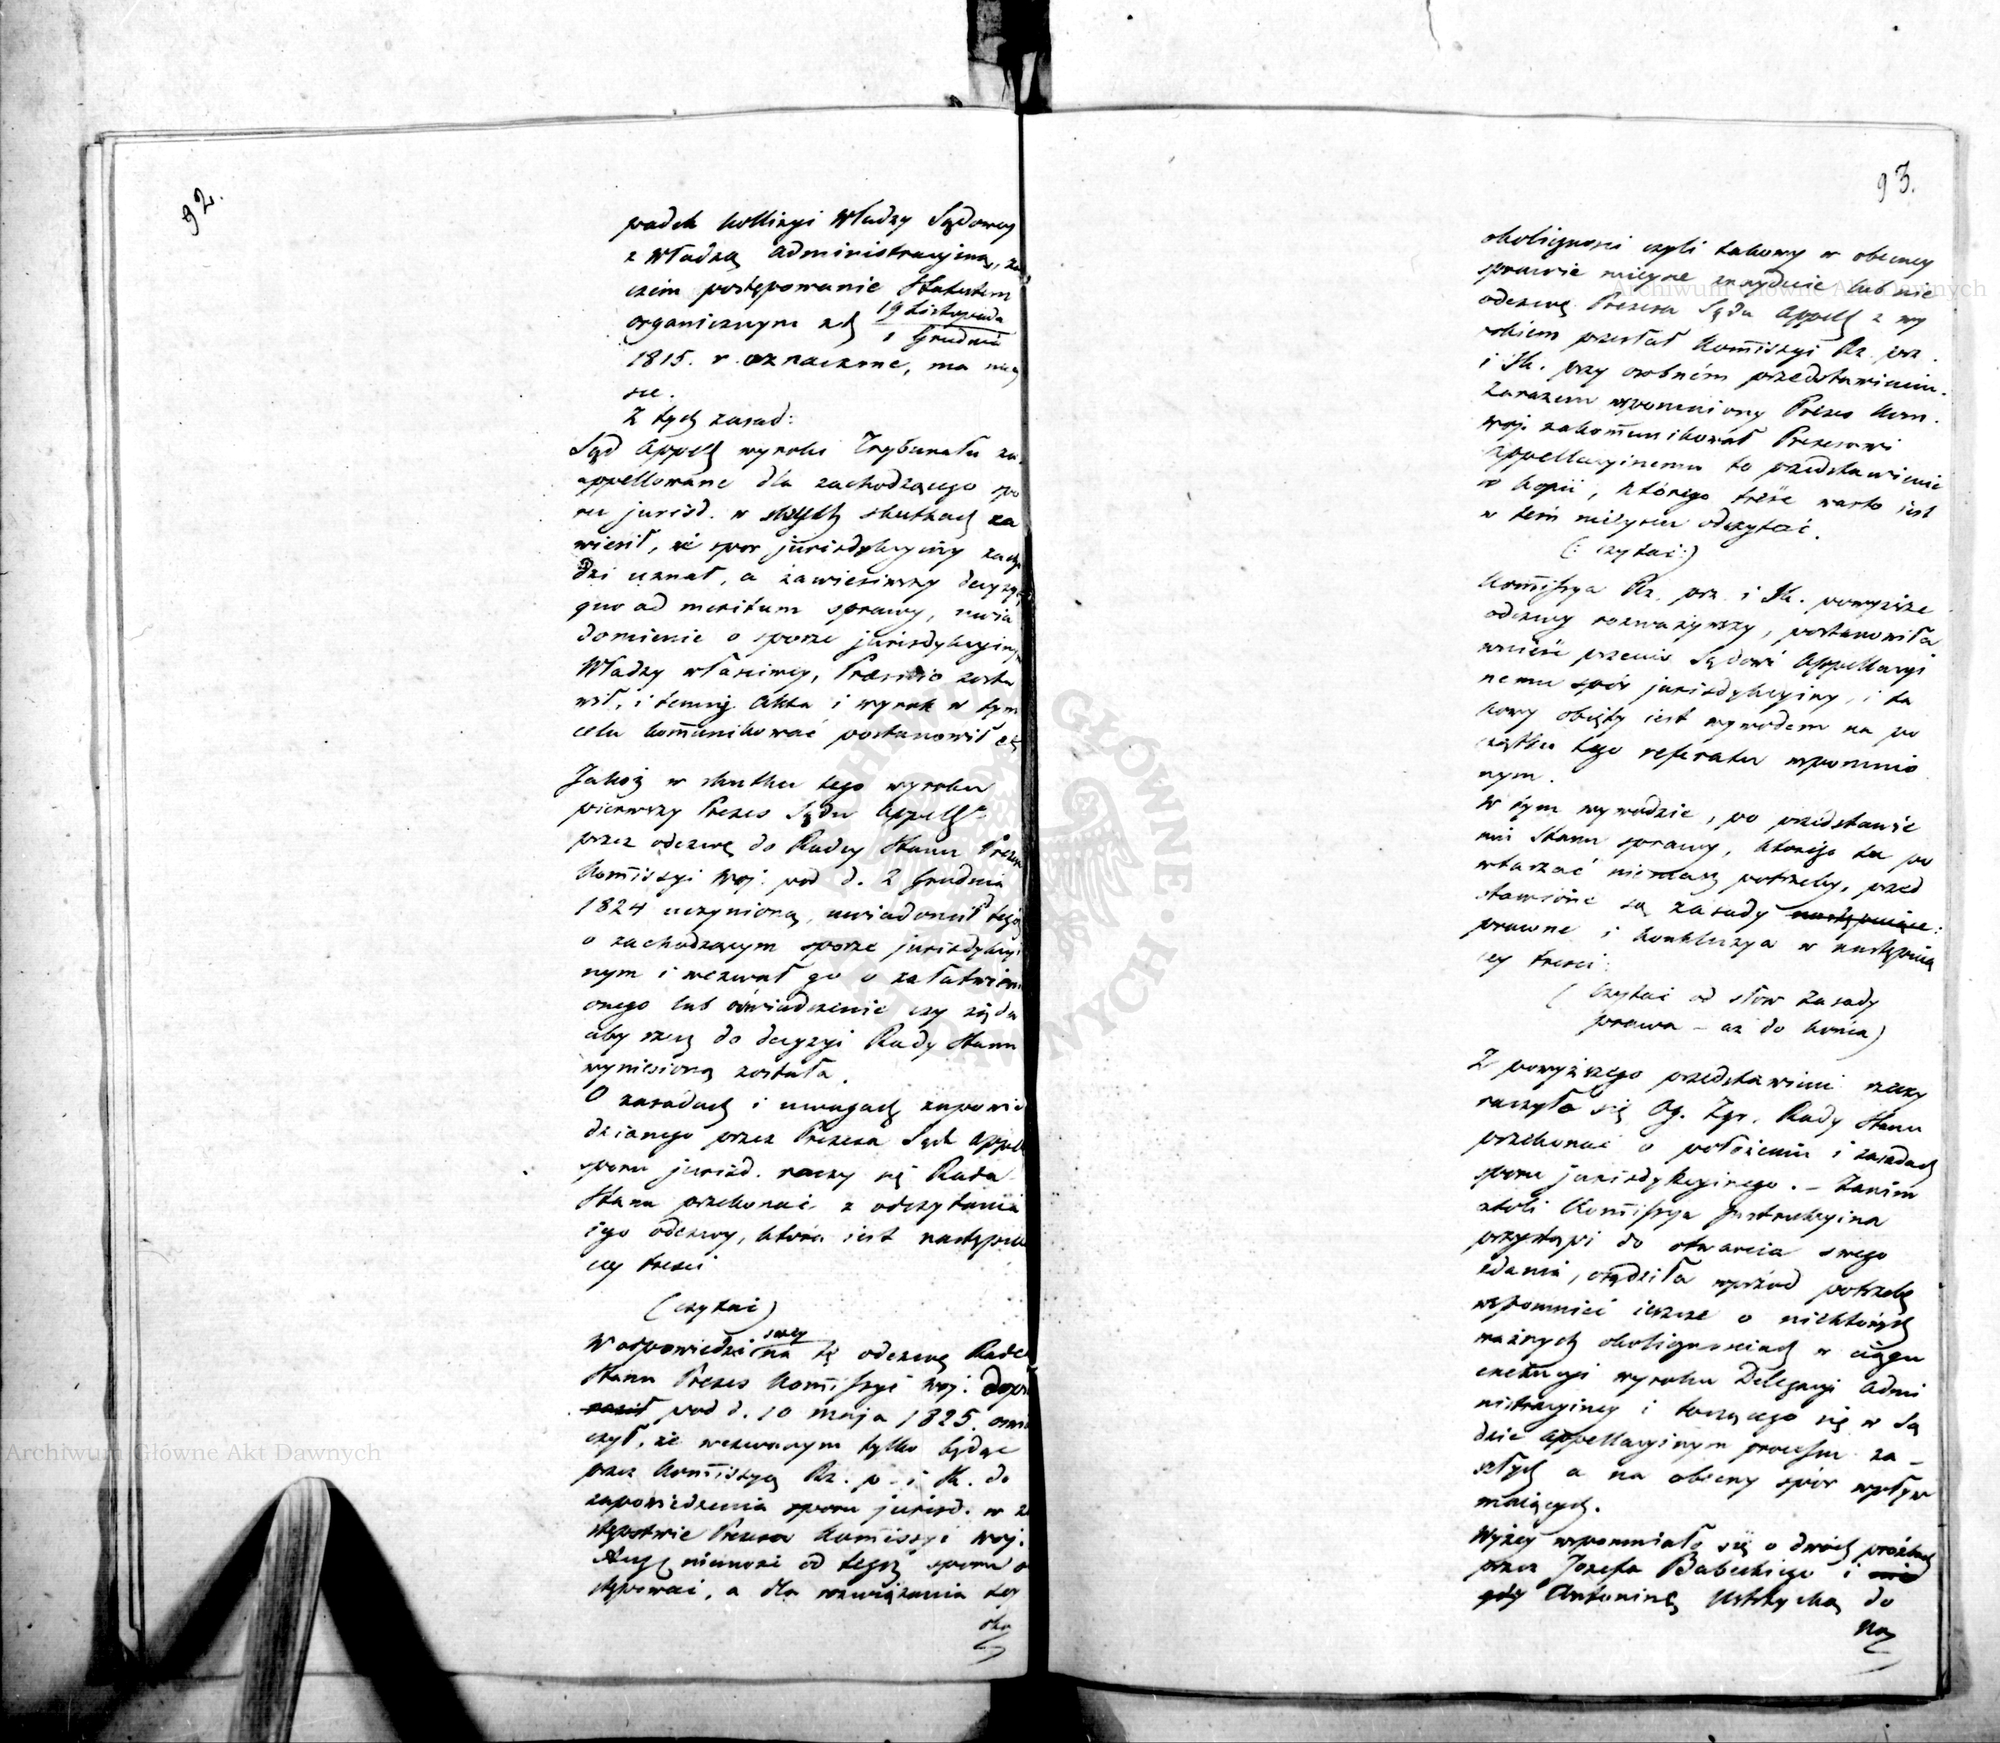 92.
padek kollizyi Władzy Sądowey
z Władzą administracyiną, za
czém postępowanie Statutem
organicznym z d. 19 Listopada
1 Grudnia
1815. r. oznaczone, ma miey
sce.
Z tych zasad:
Sąd Appell. wyroku Trybunału za
appellowane dla zachodzącego spo
ru jurisd. w skutkach za
wiesił, że spor jurisdykcyiny zacho
dzi uznał, a zawiesiwszy decyzyą
quo ad meritum sprawy, uwia
domienie o sporze jurisdykcyinym
Władzy właściwey, Praesidio zosta
wił, i temuż Akta i wyrok w tym
celu kommunikować postanowił
Jakoż w skutku tego wyroku
pierwszy Prezes Sądu Appell.
przez odezwę do Radcy Stanu Prezesa
Kommissyi Woj. pod d. 2 Grudnia
1824 uczynioną, uwiadomił tegoż
o zachodzącym sporze jurisdykcyi
nym i wezwał go o załatwienie
onego lub oświadczenie czy żąda
aby rzecz do decyzyi Rady Stanu
wyniesioną została.
O zasadach i uwagach zapowie
dzianego przez Prezesa Sądu Appell
sporu jurisd. raczy się Rada
Stanu przekonać z odczytania
iego odezwy, która iest następuią
cey treści
(czytać)
W odpowiedzi na tę odezwę Radca
swey
Stanu Prezes Kommissyi Woj.
pod d. 10 maja 1825 oświad
czył, że wezwanym tylko będąc
przez Kommissyą Rz. p. i Sk. do
zapowiedzenia sporu jurisd. w za
stępstwie Prezesa Kommissyi Woj.
niemoże od tegoż sporu o
stępować, a dla rozwiązania tey
oko
93.
okoliczności czyli takowy w obecney
sprawie mieysce znaydzie lub nie
odezwę Prezesa Sądu Appell. z wy
rokiem przesłał Kommissyi Rz. prz.
i Sk. przy osobném przedstawieniu.
Zarazem wspomniony Prezes Kom.
woj. zakommunikował Prezesowi
Appellacyinemu to przedstawienie
w kopii, którego treść warto iest
w tém mieyscu odczytać.
(: czytać :)
Kommissya Rz. prz. i Sk. powyższe
odezwy rozważywszy, postanowiła
wnieść przeciw Sądowi Appellacyi
nemu spór jurisdykcyiny, i ta
kowy obięty iest wywodem na po
czątku tego referatu wspomnio
nym.
W tym wywodzie, po przedstawie
niu stanu sprawy, którego tu po
wtarzać niemasz potrzeby, przed
stawione są zasady następuiące:
prawne i konkluzya w następuią
cey treści:
(czytać od słów Zasady
prawa – aż do końca)
Z powyższego przedstawieni rzeczy
raczyła się Og. Zgr. Rady Stanu
przekonać o położeniu i zasadach
sporu jurisdykcyinego. – Zanim
atoli Kommissya Instrukcyina
przystąpi do otwarcia swego
zdania, osądziła wprzód potrzebę
wspomnieć ieszcze o niektórych
ważnych okolicznościach w ciągu
exekucyi wyroku Delegacyi Admi
nistracyiney i toczącego się w Są
dzie Appellacyinym processu za –
szłych a na obecny spór wpływ
maiących.
Wyżey wspomniało się o dwóch prośbach
przez Jozefa Babeckiego i nie
gdy Antoninę Ustrzycką do
Kom
Archiwum Główne Akt Dawnych
Archiwum Główne Akt Dawnych